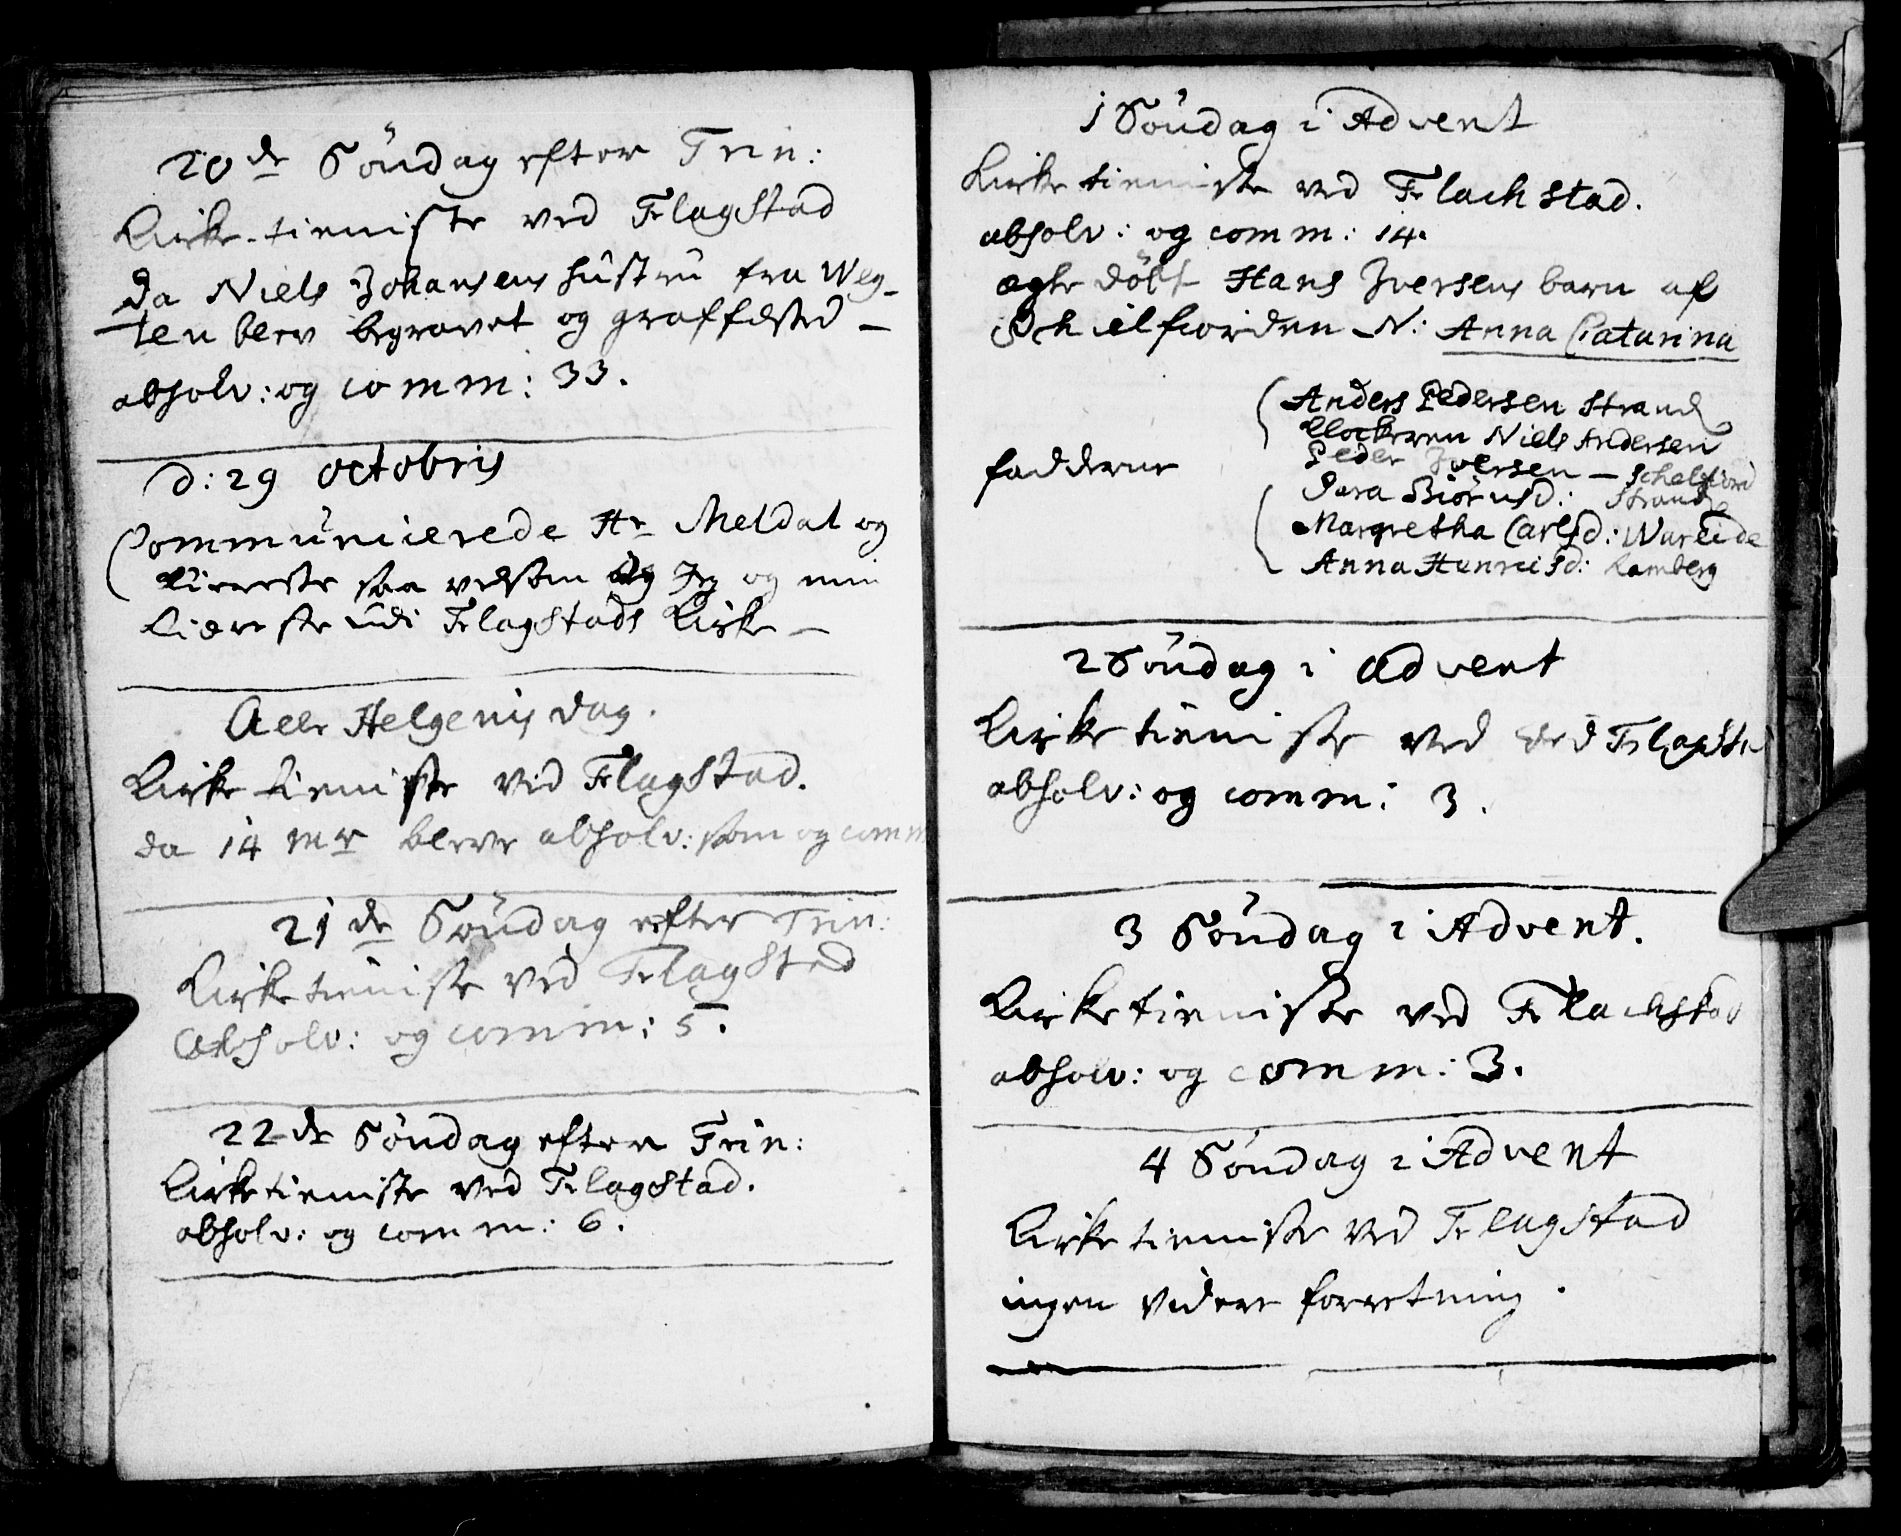 20de Söndag efter Trin:
Kirke-tieniste ved Flagstad
da Niels Johansens hüstrü fra Weg-
ten blev begravet og graffested —
absolv: og comm: 33.
d: 29 octobris
Communicierede Hr Meldal og
Kiereste saa velsom Jeg og min
Kiereste üdi Flagstads Kirke —
Alle Helgenis dag.
Kirke tieniste ved Flagstad.
da 14 mr bleve absolv: som og comm
21de Söndag efter Trin:
Kirke tieniste ved Flagstad
Absolv: og comm: 5.
22de Söndag efter Trin:
Kirke tieniste ved Flagstad.
absolv: og comm: 6.
1 Söndag i Advent
Kirke tieniste ved Flachstad.
absolv: og comm: 14.
ægte döbt Hans Iversens barn af
Schielfiorden N: Anna Catarina
Anders Pedersen Strand
Clockeren Niels Andersen
Peder Iversen — Schelfiord
fadderne
Sara Biörnsd: Strand
Margretha Carlsd: Wareide
Anna Henricsd: Ramberg
2 Söndag i Advent
Kirke tieniste ved ved Flagsta
absolv: og comm: 3.
3 Söndag i Advent.
Kirke tieniste ved Flachstad
absolv: og comm: 3.
4 Söndag i Advent
Kirke tieniste ved Flagstad
ingen videre forretning.